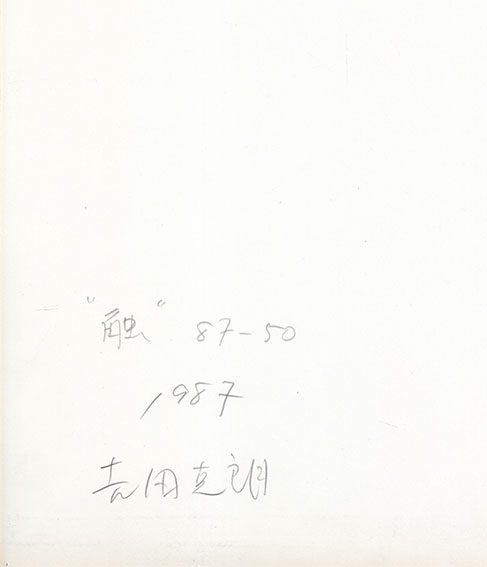 "触" 87-50
1987
吉田克朗